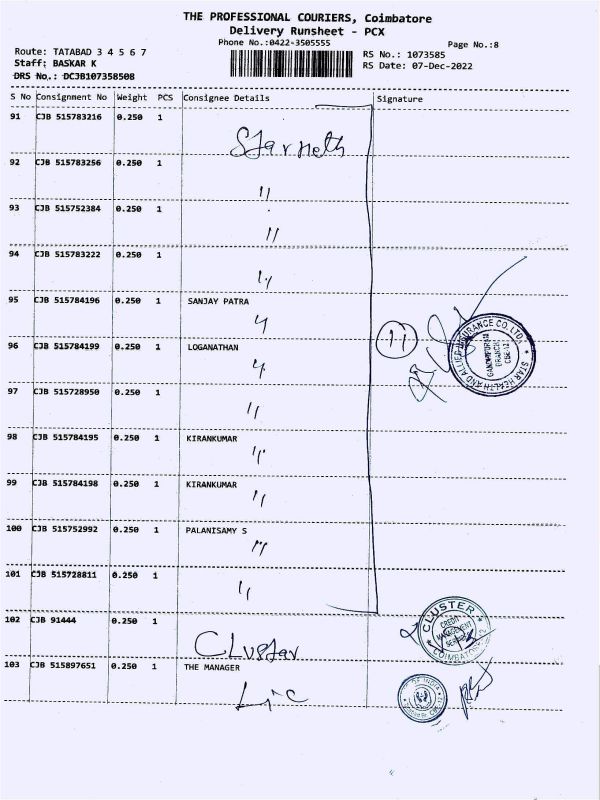 THE PROFESSIONAL COURIERS, Coimbatore
Delivery Runsheet - PCX
Phone No.:0422-3505555
Page No.:8
Route: TATABAD 3 4 5 6 7
RS No.: 1073585
Staff: BASKAR K
RS Date: 07-Dec-2022
DRS No.: DCJB107358508
S No Consignment No Weight PCS Consignee Details Signature
91 CJB 515783216 0.250 1
Star Heth
92 CJB 515783256 0.250 1
"
93 CJB 515752384 0.250 1
"
94 CJB 515783222 0.250 1
"
95 CJB 515784196 0.250 1 SANJAY PATRA
"
96 CJB 515784199 0.250 1 LOGANATHAN
"
11
STAR HEALTH AND ALLIED INSURANCE CO. LTD.
GANDHIPURAM
BRANCH
CBE-12
97 CJB 515728950 0.250 1
"
98 CJB 515784195 0.250 1 KIRANKUMAR
"
99 CJB 515784198 0.250 1 KIRANKUMAR
"
100 CJB 515752992 0.250 1 PALANISAMY S
"
101 CJB 515728811 0.250 1
"
102 CJB 91444 0.250 1
Cluster
CLUSTER
CREDIT
MANAGEMENT
SERVICES
COIMBATORE
103 CJB 515897651 0.250 1 THE MANAGER
Lic
OF INDIA